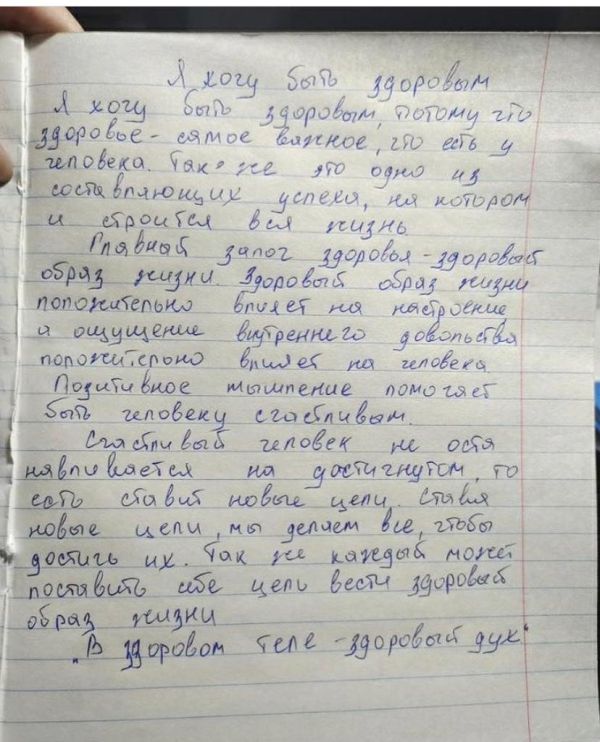 Я хочу быть здоровым
Я хочу быть здоровым, потому что
здоровье - самое важное, что есть у
человека. Так же это одно из
составляющих успеха, на котором
и строится вся жизнь
Главный залог здоровья - здоровый
образ жизни. Здоровый образ жизни
положительно влияет на настроение
и ощущение внутреннего довольства
положительно влияет на человека
Позитивное мышление помогает
быть человеку счастливым.
Счастливый человек не оста
навливается на достигнутом, то
есть ставит новые цели. Ставя
новые цели, мы делаем все, чтобы
достичь их. Так же каждый может
поставить себе цель вести здоровый
образ жизни
"В здоровом теле - здоровый дух"